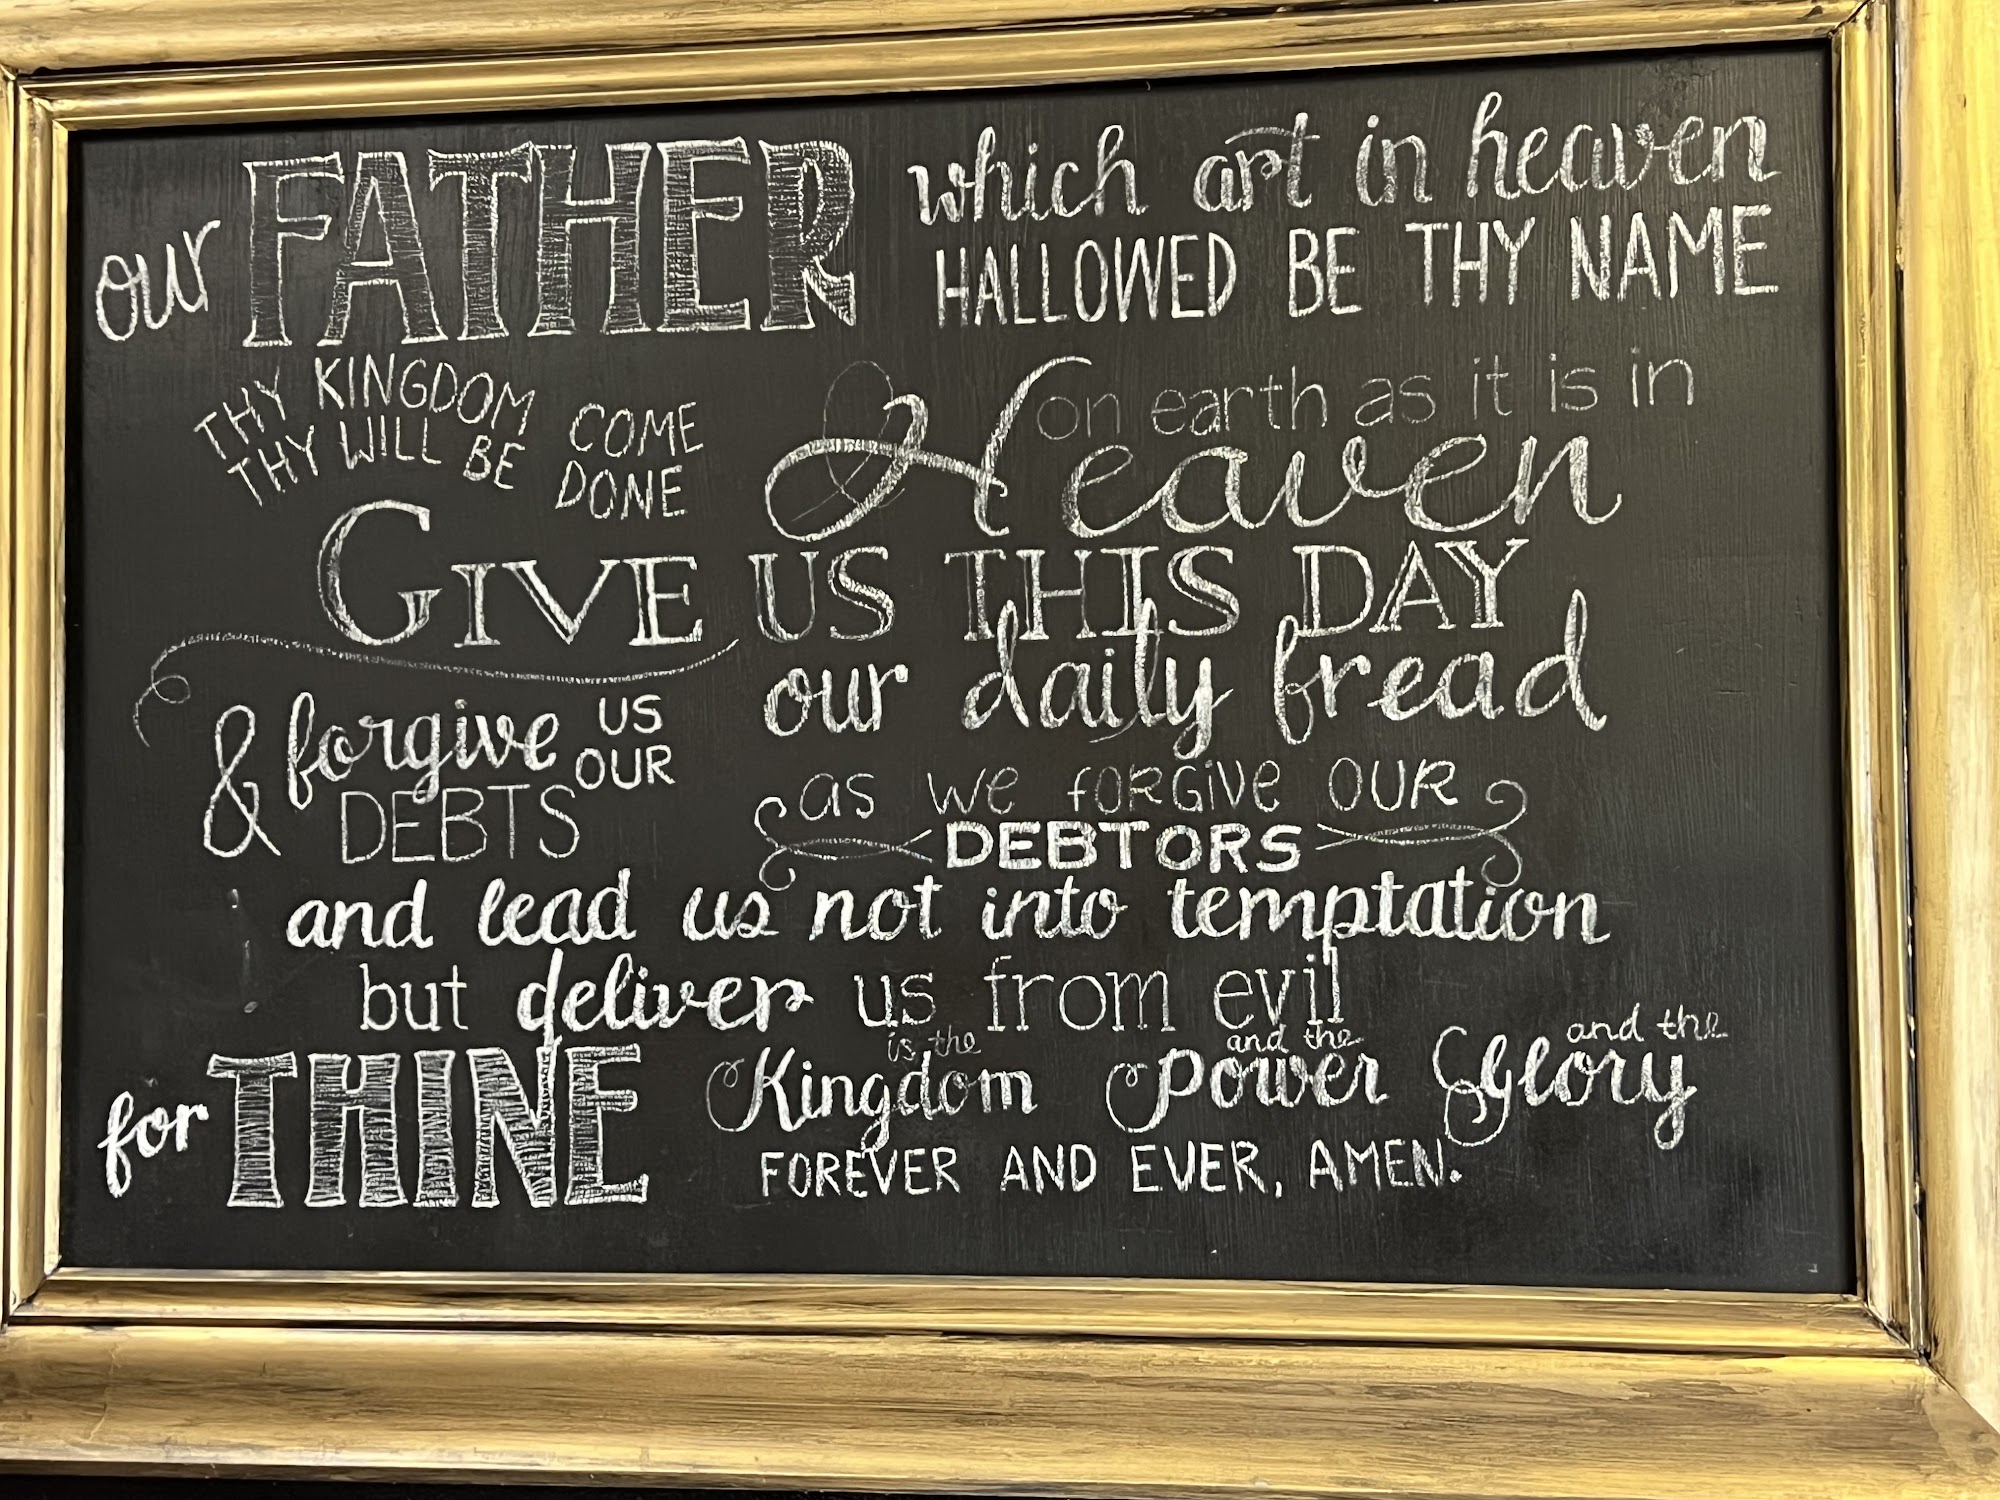 our FATHER which art in heaven
HALLOWED BE THY NAME
THY KINGDOM COME
THY WILL BE DONE
on earth as it is in
Heaven
GIVE US THIS DAY
our daily bread
& forgive US OUR
DEBTS
as we forgive our
DEBTORS
and lead us not into temptation
but deliver us from evil
for THINE is the Kingdom and the Power and the Glory
FOREVER AND EVER, AMEN.